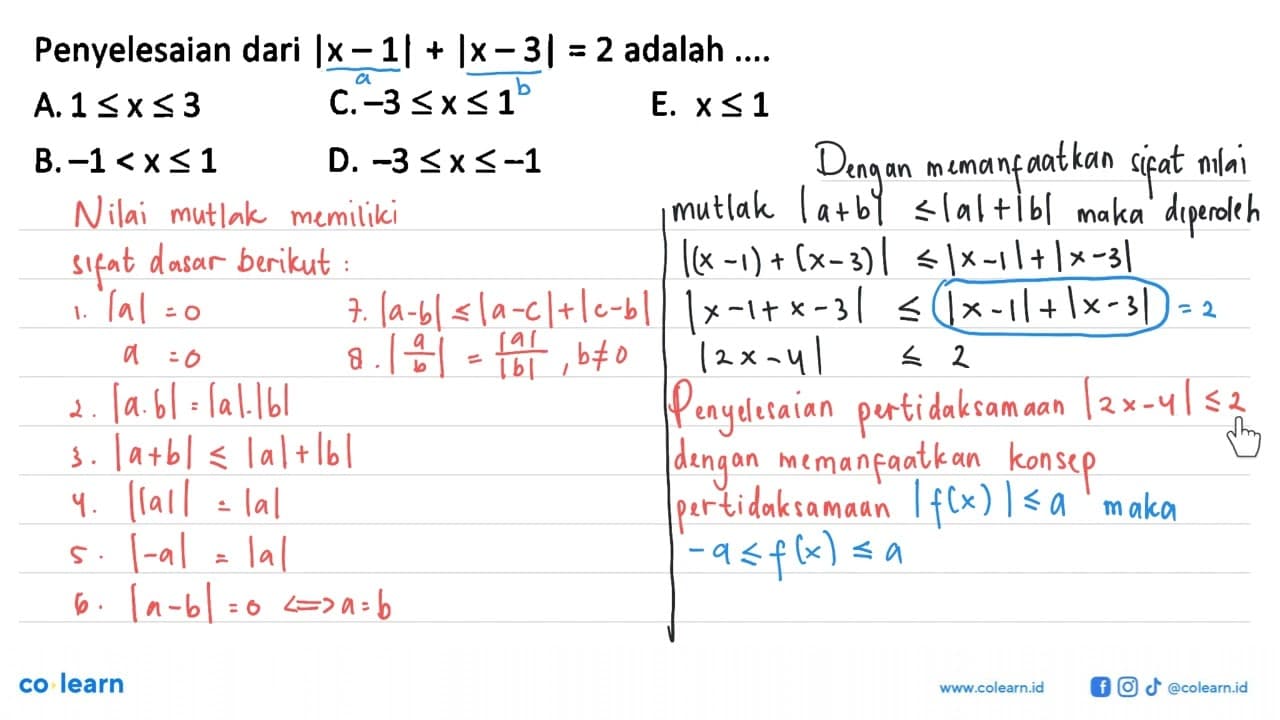 Penyelesaian dari |x – 1| + |x – 3| = 2 adalah ....
a
b
A. 1 ≤ x ≤ 3 C. –3 ≤ x ≤ 1 E. x ≤ 1
B. –1 < x ≤ 1 D. –3 ≤ x ≤ –1
Nilai mutlak memiliki
sifat dasar berikut :
1. |a| = 0
a = 0
2. |a.b| = |a|.|b|
3. |a+b| ≤ |a|+|b|
4. ||a|| = |a|
5. |-a| = |a|
6. |a-b| = 0 <=> a = b
7. |a-b| ≤ |a-c|+|c-b|
8. |a/b| = |a|/|b| , b≠0
Dengan memanfaatkan sifat nilai
mutlak |a+b| ≤ |a|+|b| maka diperoleh
|(x-1)+(x-3)| ≤ |x-1|+|x-3|
|x-1+x-3| ≤ |x-1|+|x-3| = 2
|2x-4| ≤ 2
Penyelesaian pertidaksamaan |2x-4| ≤ 2
dengan memanfaatkan konsep
pertidaksamaan |f(x)| ≤ a maka
-a ≤ f(x) ≤ a
co learn
www.colearn.id @colearn.id